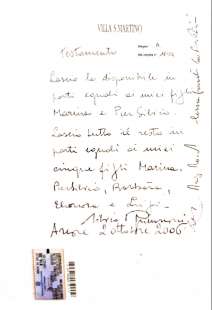 VILLA S. MARTINO
Testamento
Lascio la disponibile in
parti eguali ai miei figli
Marina e Pier Silvio.
Lascio tutto il resto in
parti eguali ai miei
cinque figli Marina,
Pier Silvio, Barbara,
Eleonora e Luigi.
Silvio Berlusconi
Arcore 2 ottobre 2006